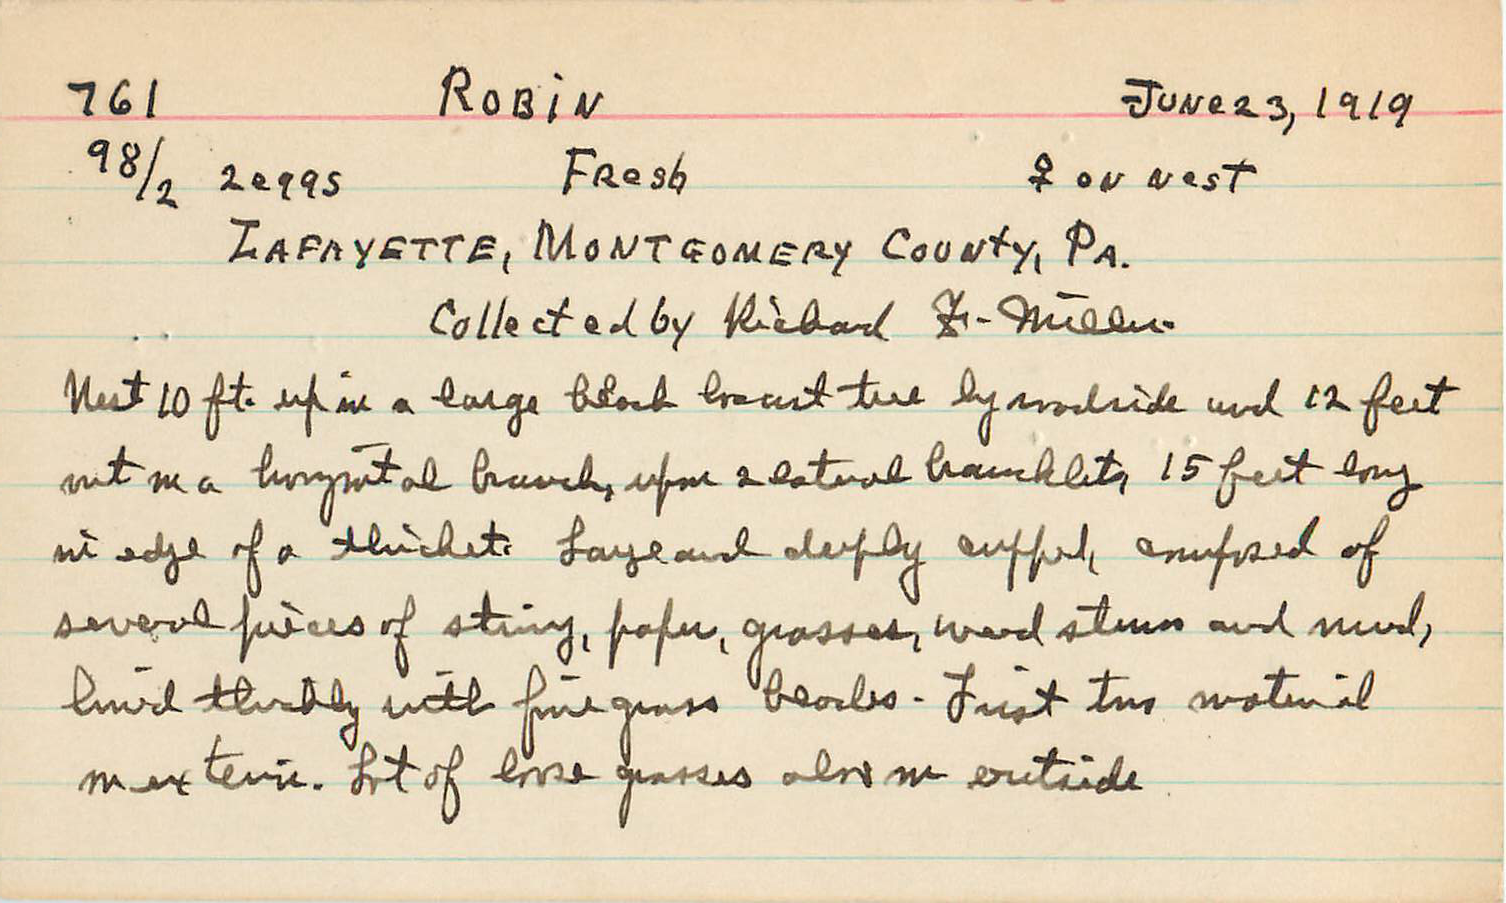 761 ROBiN JUNe 23, 1919
98/2 2 eggs Fresh ♀ on nest
LAFAYETTE, MONTGOMERY COUNty, PA.
Collected by Richard F. Miller.
Nest 10 ft. up in a large black locust tree by roadside and 12 feet
out on a horizontal branch, upon 2 lateral branchlets, 15 feet long
in edge of a thicket. Large and deeply cupped, composed of
several pieces of string, paper, grasses, weed stems and mud,
lined thickly with fine grass blades. First two material
on exterior. Lot of loose grasses also on outside